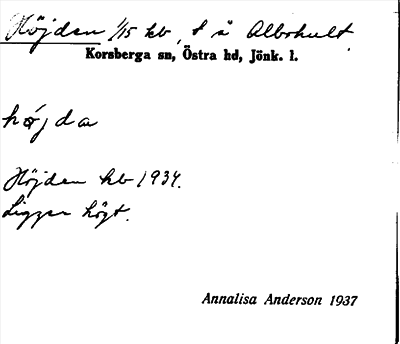 Höjden 1/15 kb, t å Albohult
Korsberga sn, Östra hd, Jönk. l.
höjda
Höjden kb 1934.
Ligger högt.
Annalisa Anderson 1937